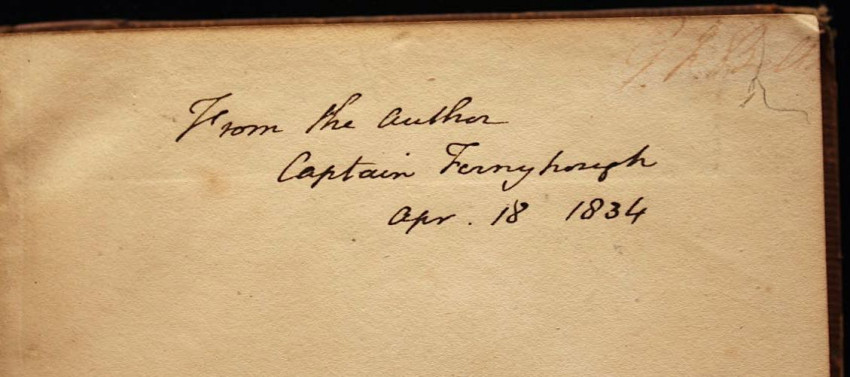 From the author
Captain Fernyhough
Apr. 18 1834